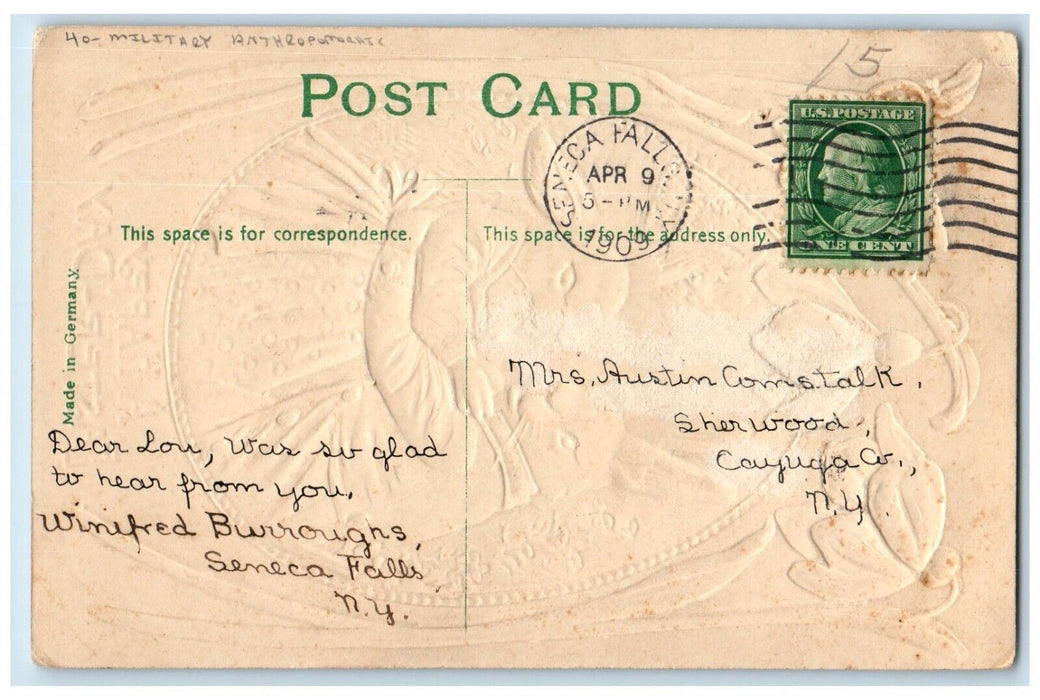 40- MILITARY
15
POST CARD
SENECA FALLS N.Y.
APR 9
5-PM
1909
U.S. POSTAGE
ONE CENT
This space is for correspondence.
This space is for the address only.
Made in Germany.
Mrs. Austin Comstalk,
Sherwood,
Cayuga Co.,
N.Y.
Dear Lou, Was so glad
to hear from you.
Winifred Burroughs,
Seneca Falls
N.Y.